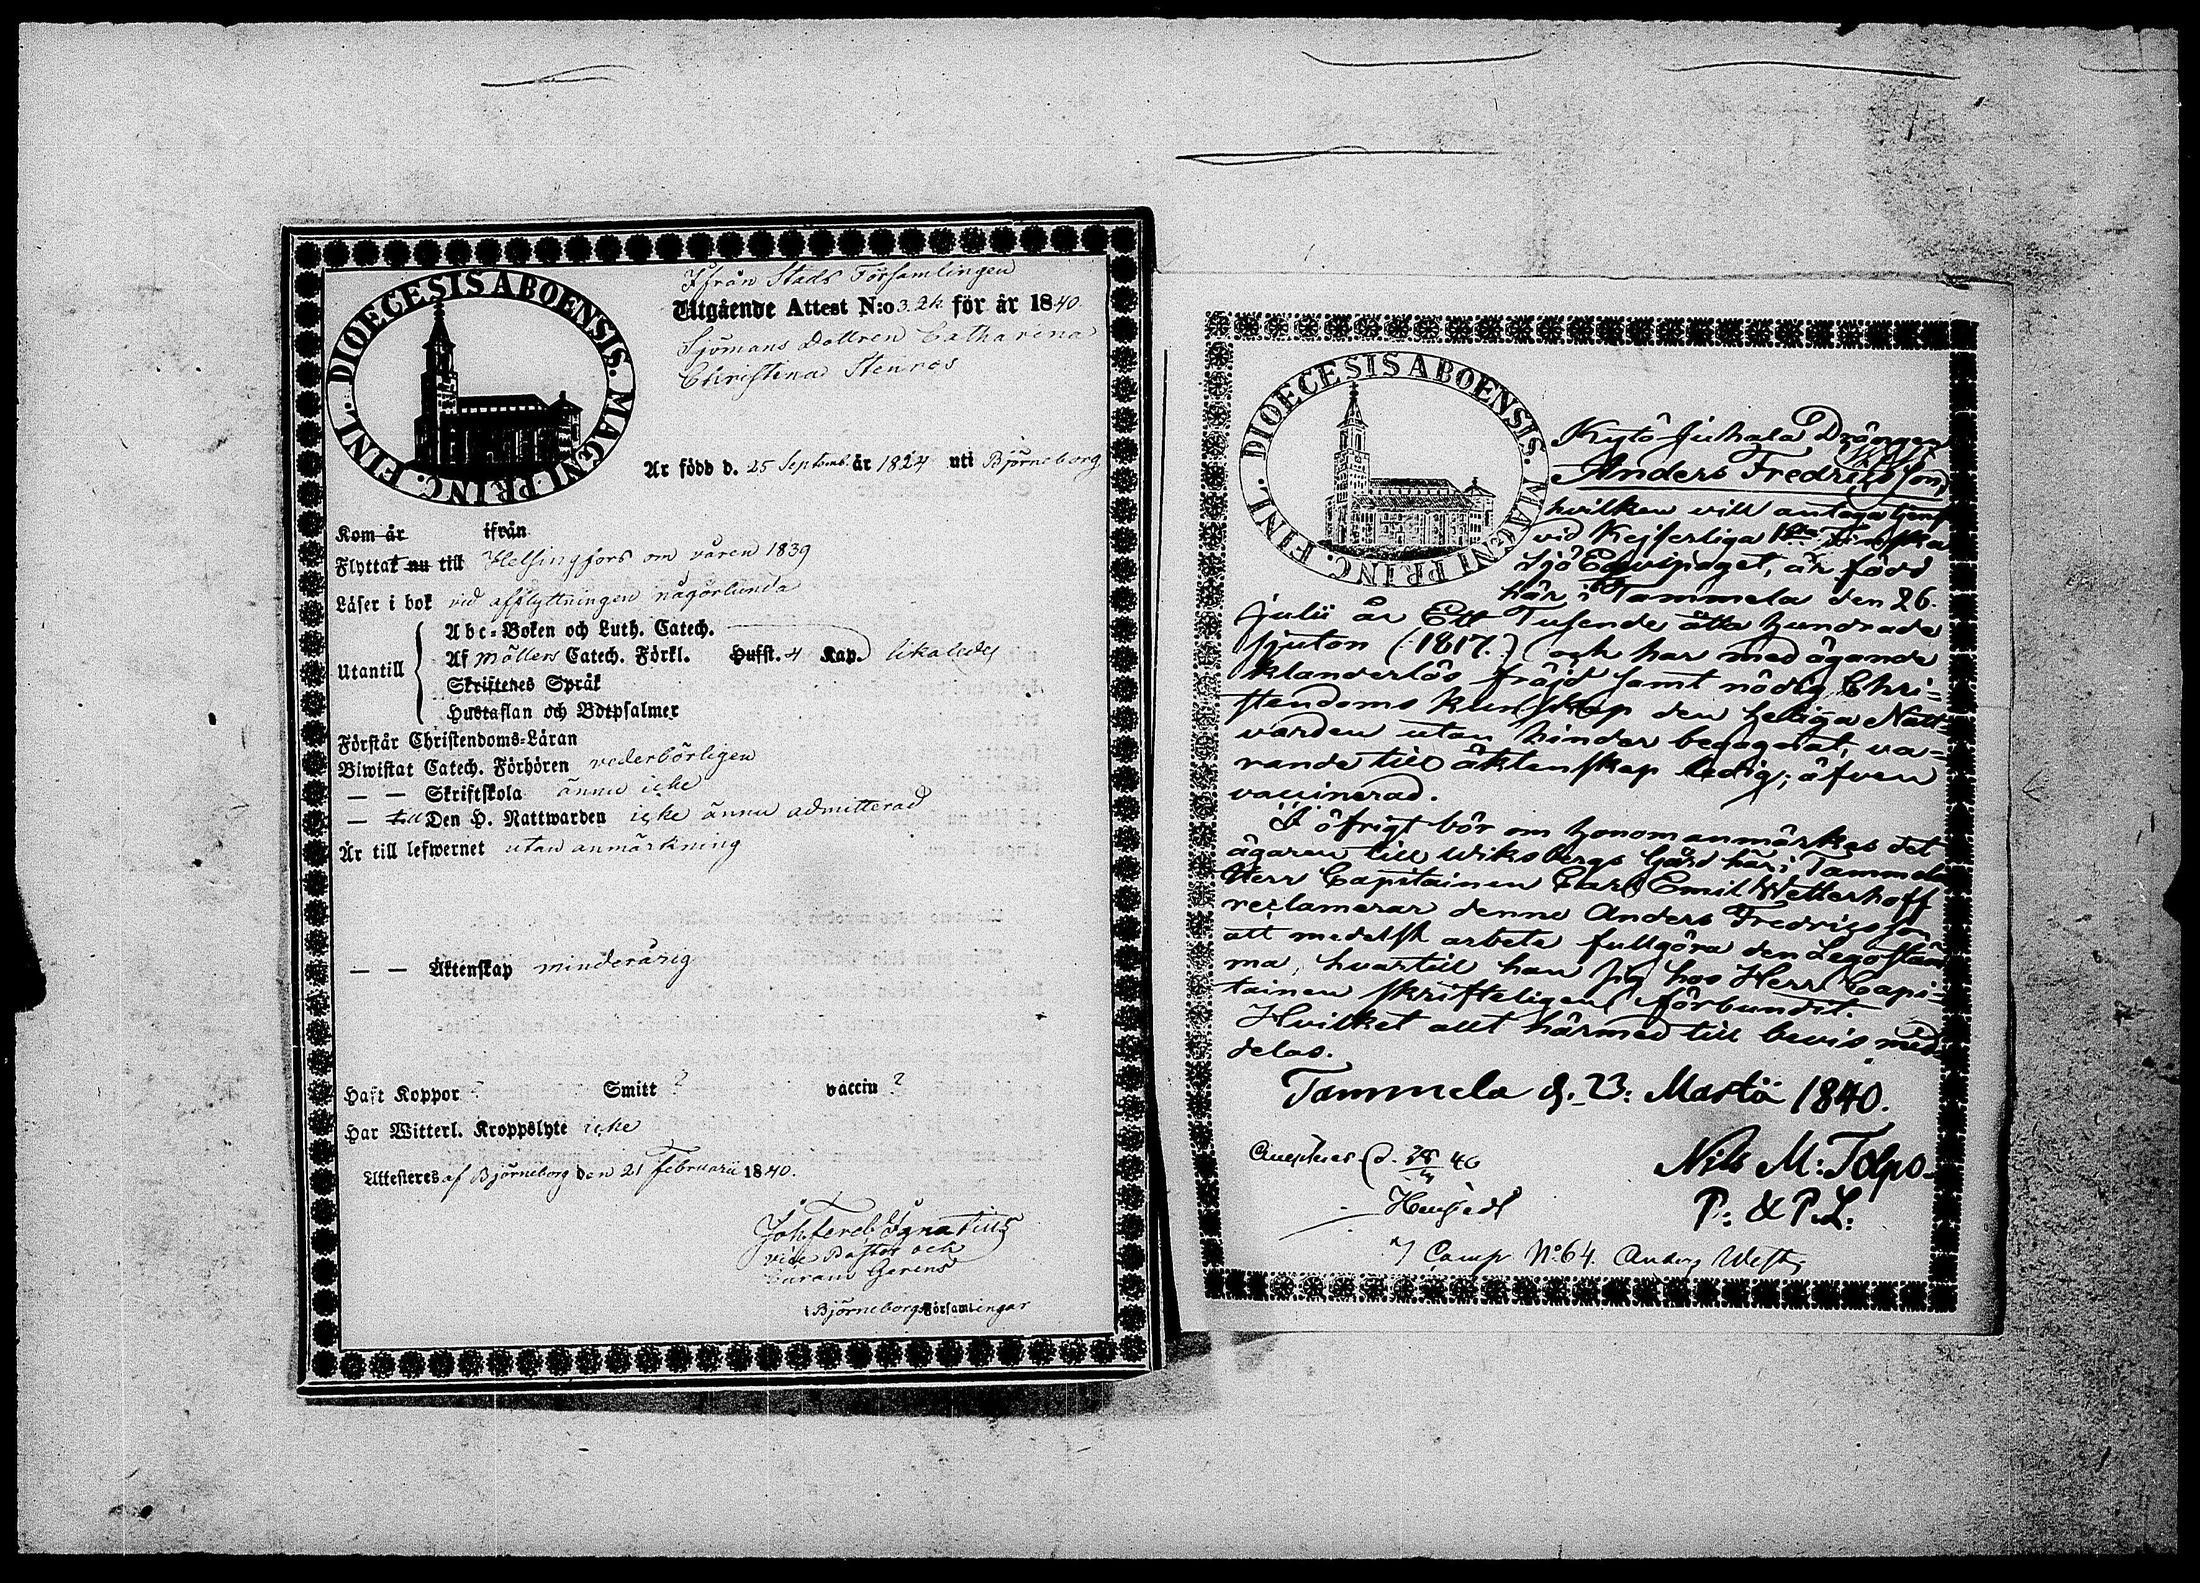 DIOECESIS ABOENSIS. MAGNI PRINC. FINL.
Ifrån Stads Församlingen
Utgående Attest N:o 3. 2k för år 1840.
Sjömans Dottren Catharina
Christina Stenros
Är född d. 25 Septemb. år 1824 uti Björneborg
Kom år ifrån
Flyttat nu till Helsingfors om våren 1839
Läser i bok vid afflyttningen någorlunda
Utantill
Abc-Boken och Luth. Catech.
Af Möllers Catech. Förkl. Hufst. 4 Kap. likaledes
Skriftenes Språk
Hustaflan och Botpsalmer
Förstår Christendoms-Läran
Biwistat Catech. Förhören vederbörligen
— — Skriftskola ännu icke
— till Den H. Nattwarden icke ännu admitterad
Är till lefwernet utan anmärkning
— — Äktenskap minderårig
Haft Koppor ? Smitt ? vaccin ?
Har Witterl. Kroppslyte icke
Attesteres af Björneborg den 21 Februarii 1840.
Joh Ferd Ignatius
vice Pastor och
Curam Gerens
i Björneborgs Församlingar
DIOECESIS ABOENSIS. MAGNI PRINC. FINL.
Kytö Juhala Drängen
Anders Fredricsson,
hvilken vill antaga tjenst
vid Kejserliga 1sta Finska
Sjö Equipaget, är född
här i Tammela den 26.
julii år Ett Tusende åtta hundrade
sjuton (1817.) och har med ägande
klanderlös fräjd samt nödig Chri-
stendoms kunskap den heliga Natt-
varden utan hinder begagnat, va-
rande till äktenskap ledig; äfven
vaccinerad.
I öfrigt bör om honom anmärkas det
ägaren till Wiksbergs Gård här i Tammela
Herr Capitainen Carl Emil Wetterhoff
reclamerar denne Anders Fredricsson
att medelst arbete fullgöra den Legostäm
ma, hvartill han sig hos Herr Capi-
tainen skrifteligen förbundit.
Hvilket allt härmed till bevis med-
delas.
Tammela d. 23. Martii 1840.
Nils M: Tolpo
P: & P. L:
7 Comp No 64. Anders West